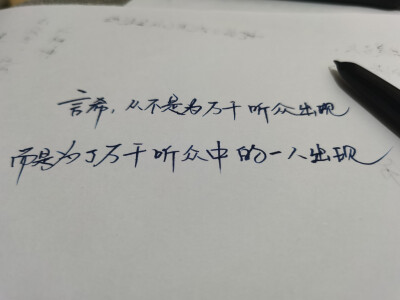 言希，从不是为万千听众出现
而是为了万千听众中的一人出现